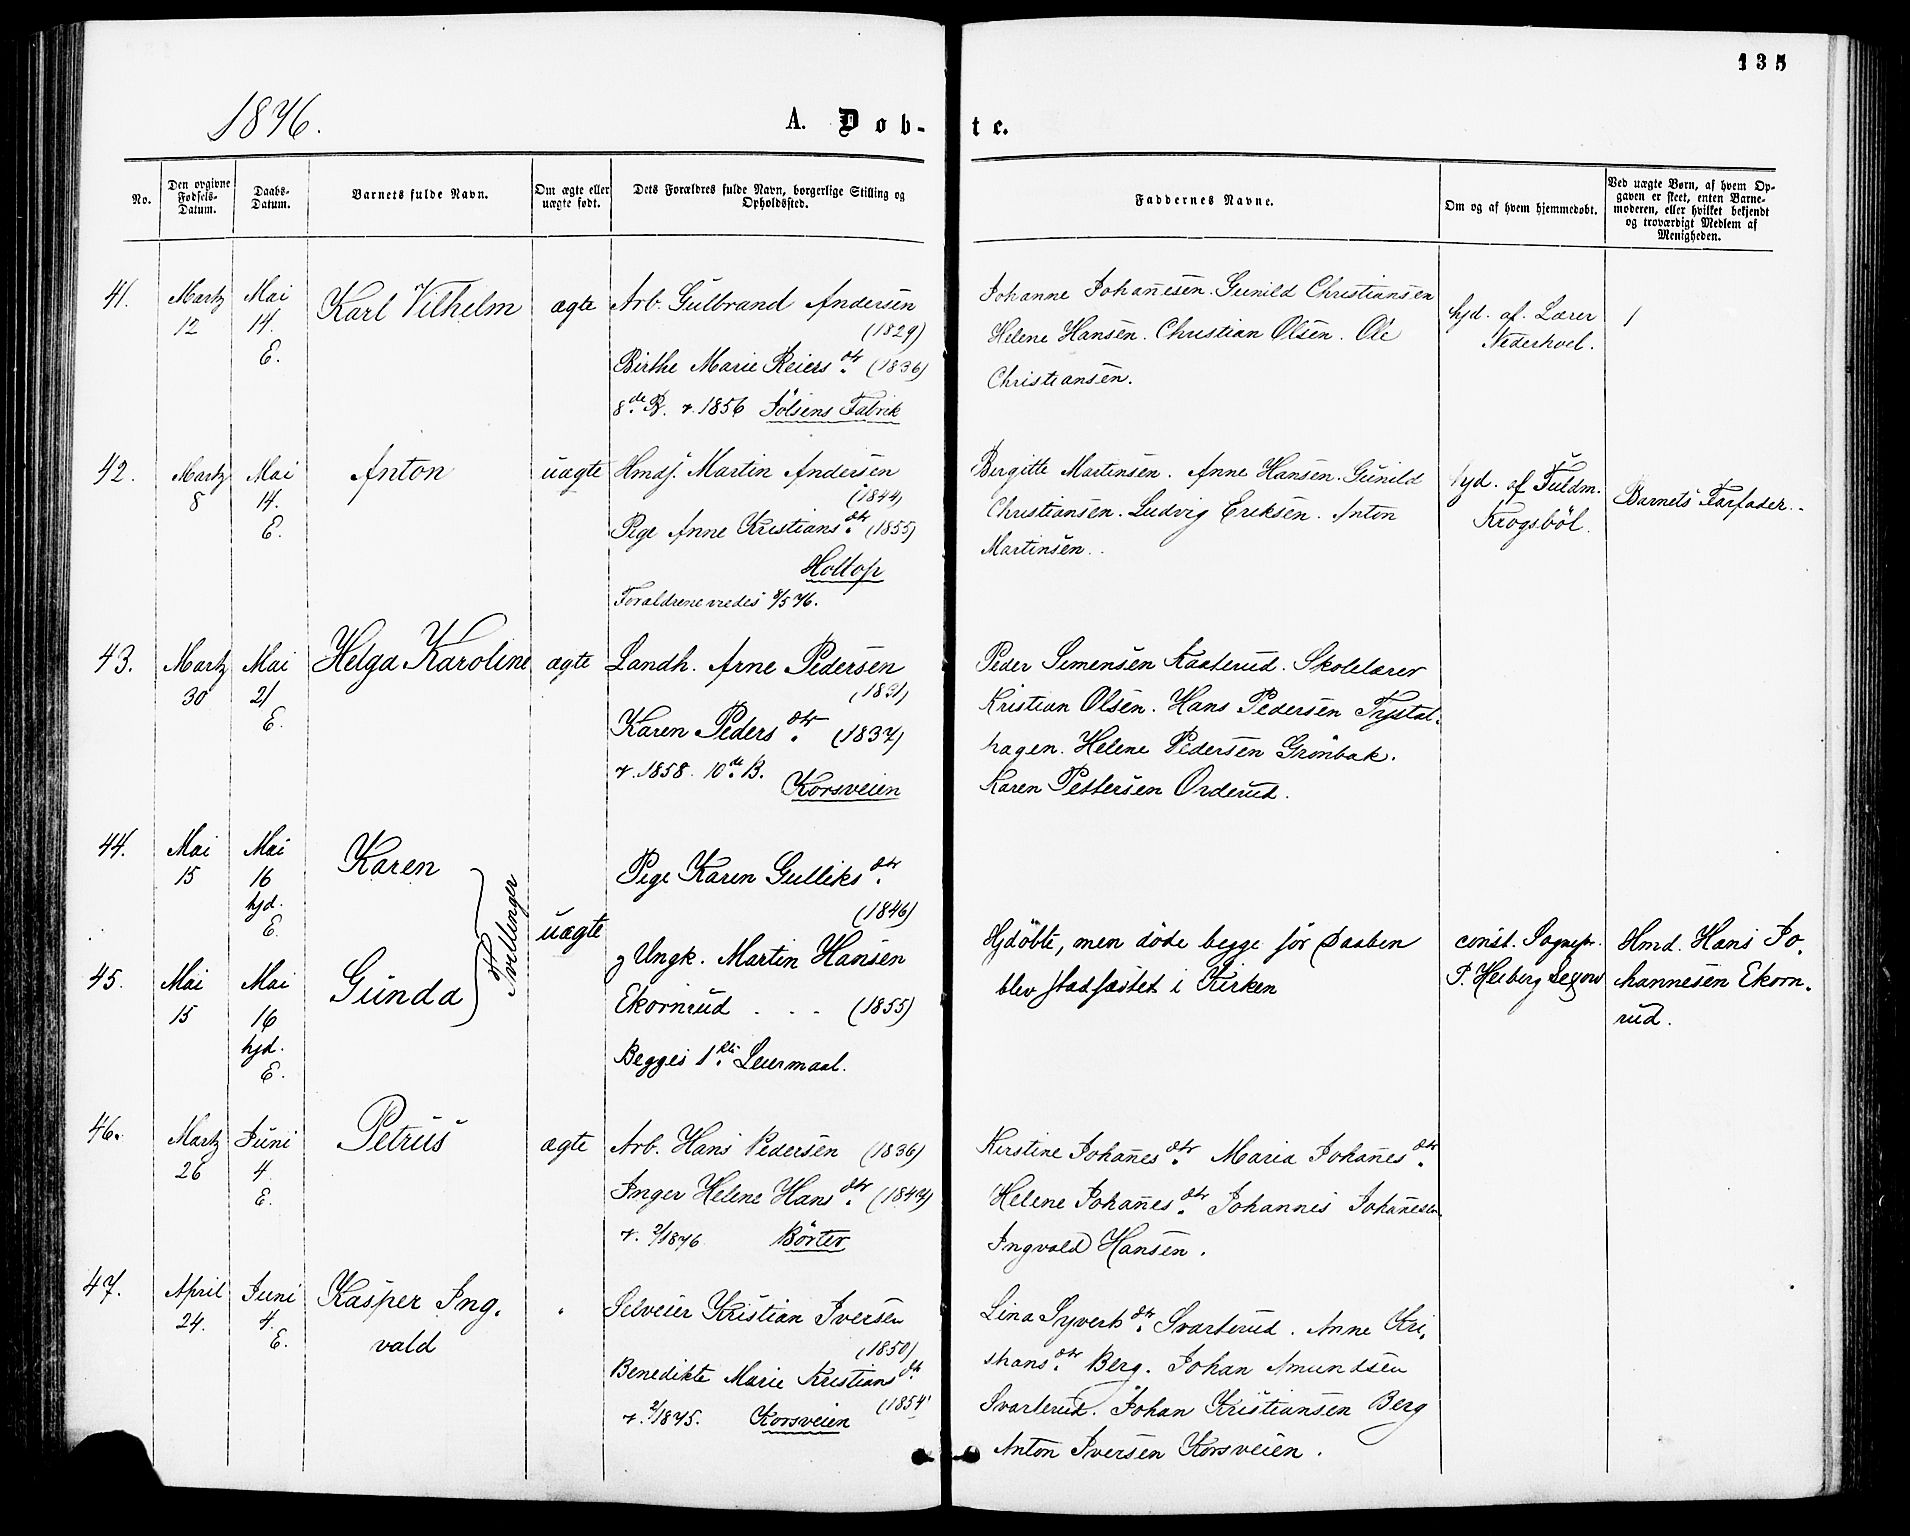 135
1876.
A. Døb- te.
No.
Den opgivne Fødsels-Datum.
Daabs-Datum.
Barnets fulde Navn.
Om ægte eller uægte født.
Dets Forældres fulde Navn, borgerlige Stilling og Opholdssted.
Faddernes Navne.
Om og af hvem hjemmedøbt.
Ved uægte Børn, af hvem Opgaven er skeet, enten Barnemoderen, eller hvilket bekjendt og troværdigt Medlem af Menigheden.
41.
Martz
12
Mai
14.
E.
Karl Vilhelm
ægte
Arb. Gulbrand Andersen
(1829)
Birthe Marie Reiers dtr. (1836)
8de B. v. 1856 Jølsens Fabrik
Johanne Johanesen. Gunild Christiansen
Helene Hansen. Christian Olsen. Ole
Christiansen.
hjd. af. Lærer
Nederhoel.
/
42.
Martz
8
Mai
14.
E.
Anton
uægte
Hmdsj. Martin Andersen
(1844)
Pige Anne Kristians dtr. (1855)
Holtop
Forældrene viedes 8/5 76.
Bergitte Martinsen. Anne Hansen. Gunild
Christiansen. Ludvig Eriksen. Anton
Martinsen.
hjd. af Fuldm.
Krogsbøl.
Barnets Farfader.
43.
Martz
30
Mai
21
E.
Helga Karoline
ægte
Landh. Arne Pedersen
(1831)
Karen Peders dtr. (1837)
v. 1858. 10de B.
Korsveien
Peder Simensen Kaaterud. Skolelærer
Kristian Olsen. Hans Pedersen Trystal-
hagen. Helene Pedersen Grønbæk.
Karen Pettersen Orderud.
44.
Mai
15
Mai
16
hjd.
E.
Karen
Tvillinger
uægte
Pige Karen Gulliks dtr.
(1846)
g Ungk. Martin Hansen
Ekornrud . . . (1855)
Begges 1ste Leiermaal.
Hjdøbte, men døde begge før Daaben
blev stadfæstet i Kirken
const. Sognepr.
P. Heiberg
Hmd. Hans Jo-
hannesen Ekorn-
rud.
45.
Mai
15
Mai
16
hjd.
E.
Gunda
46.
Martz
26
Juni
4
E.
Petrus
ægte
Arb. Hans Pedersen (1836)
Inger Helene Hans dtr. (1847)
v. 2/1876 Børter
Kerstine Johanes dtr. Maria Johanes dtr.
Helene Johanes dtr. Johannes Johanesen
Ingvald Hansen.
47.
April
24.
Juni
4.
E.
Kasper Ing-
vald
"
Selveier Kristian Iversen
(1850)
Benedikte Marie Kristians dtr
(1854)
v. 2/1875. Korsveien
Lina Syverts dtr. Svarterud. Anne Kri-
stians dtr. Berg. Johan Amundsen
Svarterud. Johan Kristiansen Berg
Anton Iversen Korsveien.